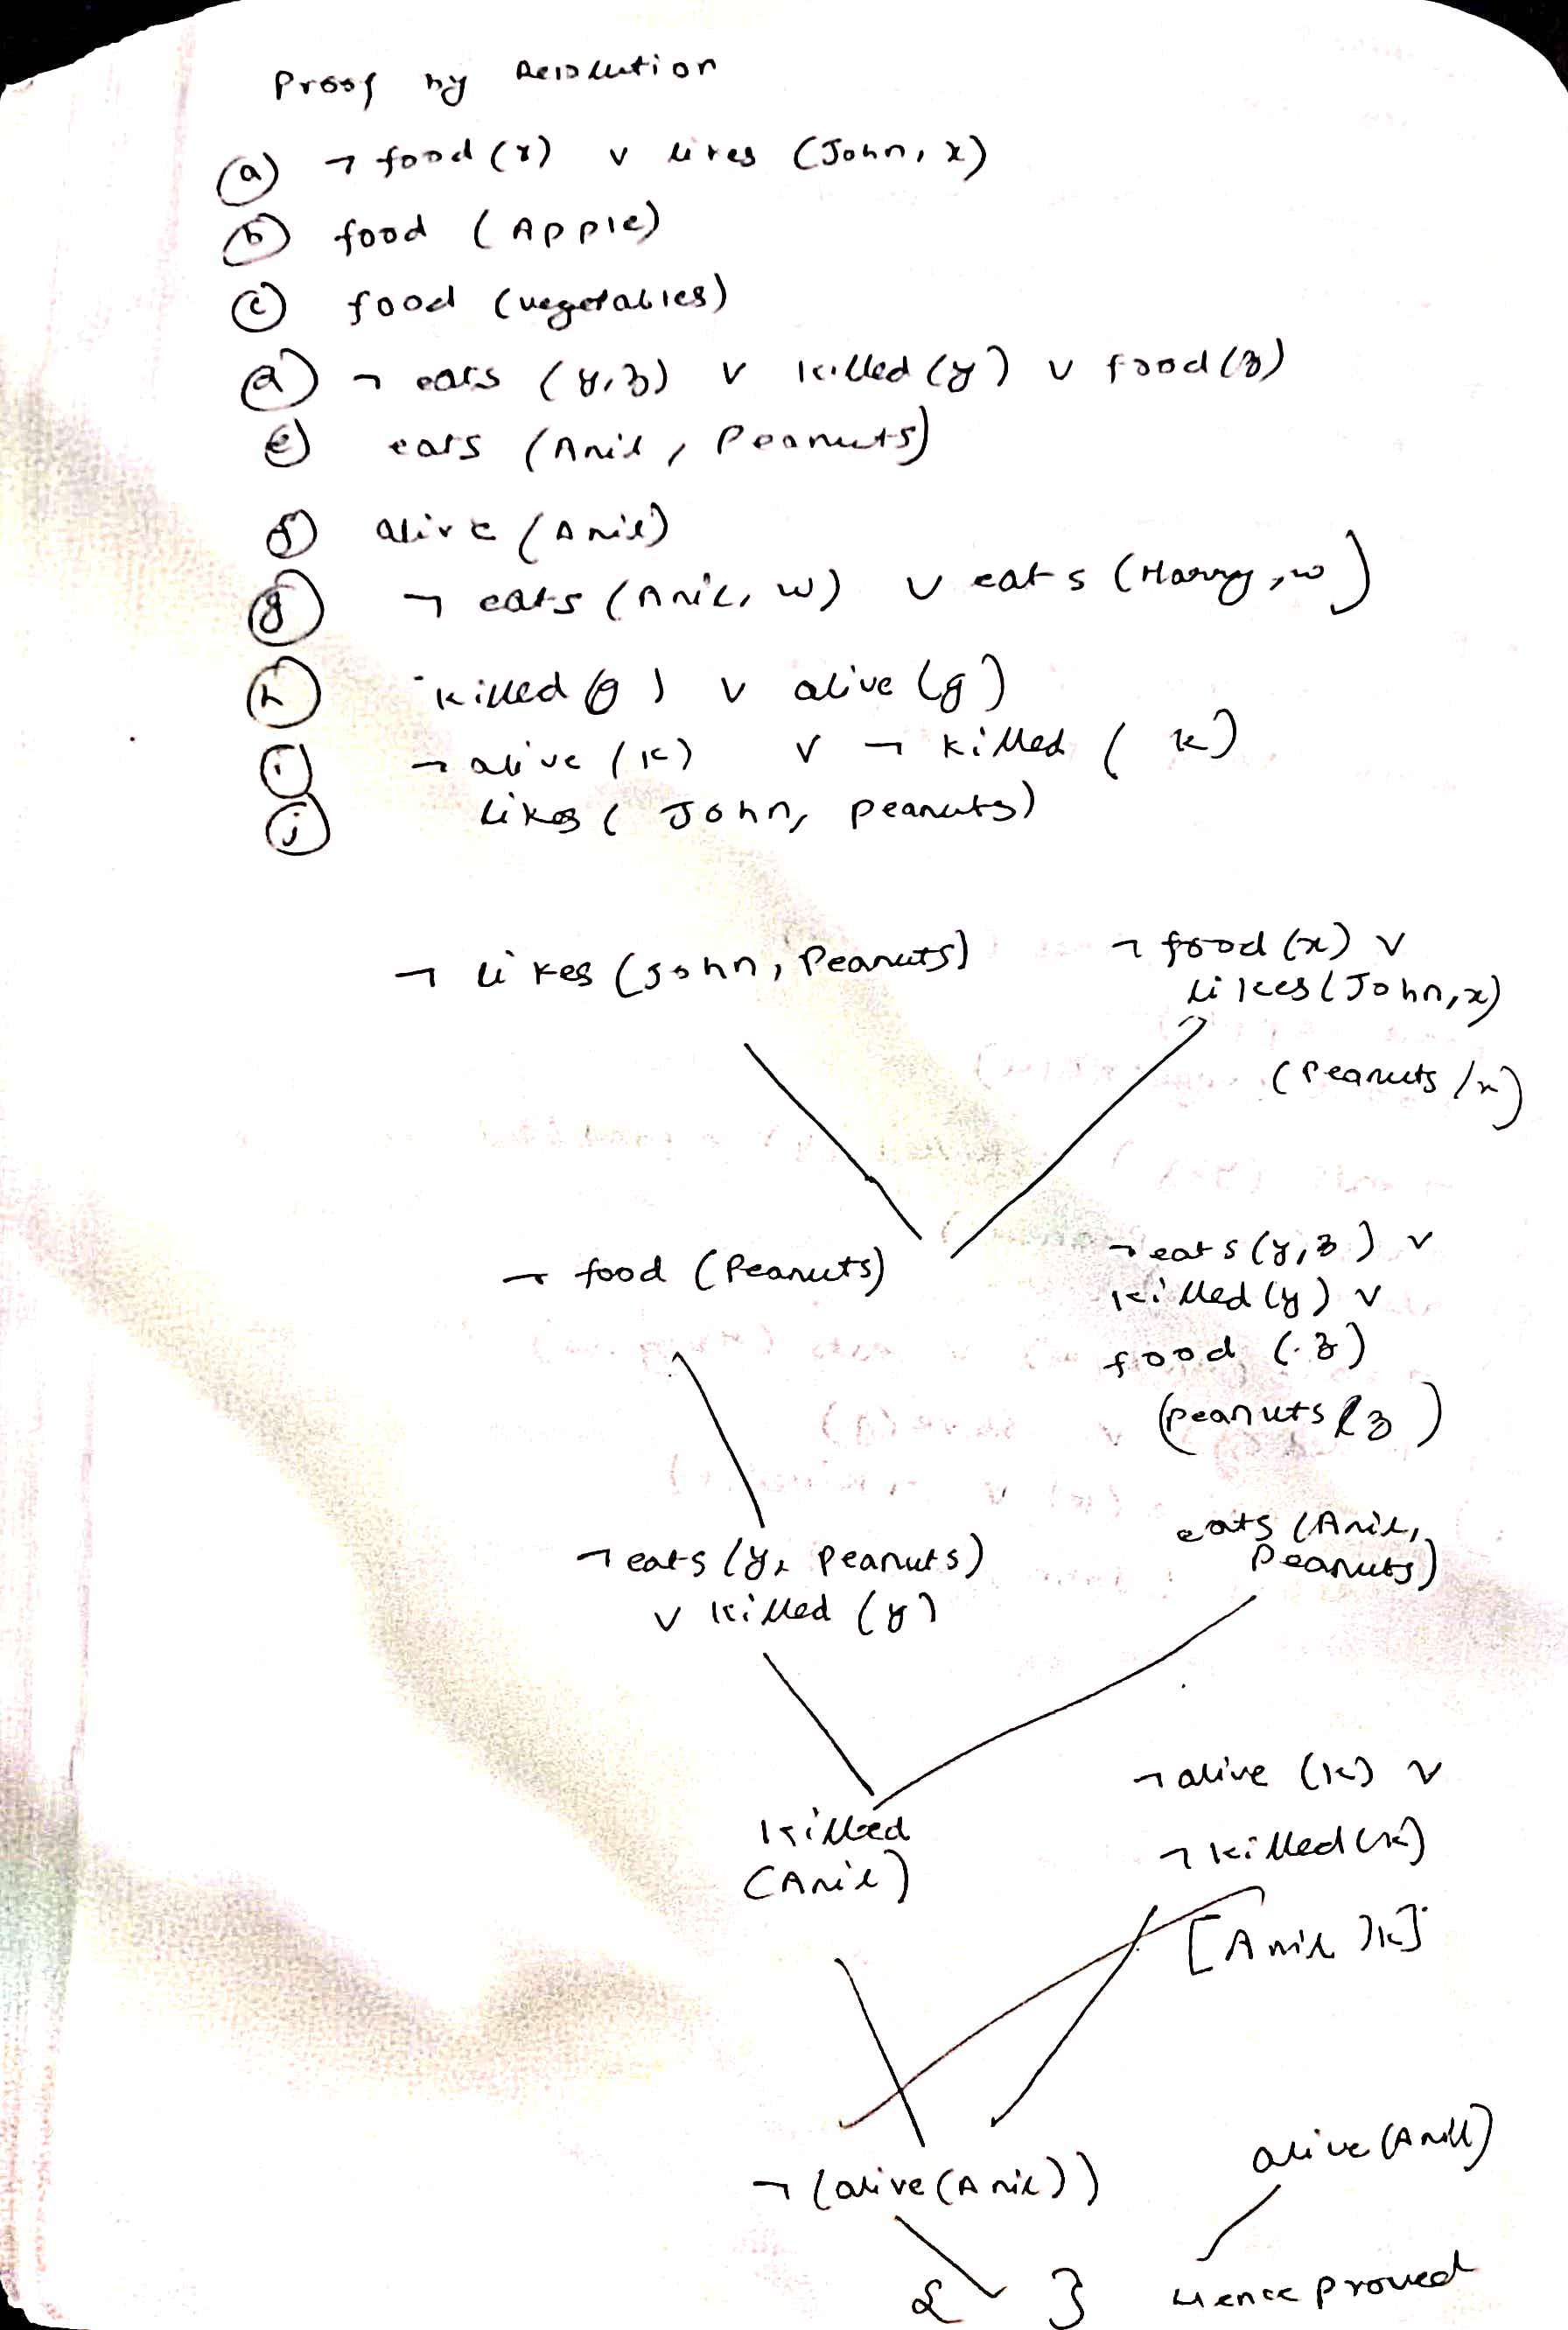 Proof by Resolution
(a) ¬ food (x) v likes (John, x)
(b) food (Apple)
(c) food (vegetables)
(d) ¬ eats (y, z) v killed (y) v food (z)
(e) eats (Anil, Peanuts)
(f) alive (Anil)
(g) ¬ eats (Anil, w) v eats (Harry, w)
(h) killed (g) v alive (g)
(i) ¬ alive (k) v ¬ killed (k)
(j) likes (John, peanuts)
¬ likes (John, Peanuts) ¬ food (x) v
likes (John, x)
(Peanuts / x)
¬ food (Peanuts) ¬ eats (y, z) v
killed (y) v
food (z)
(peanuts / z)
¬ eats (y, Peanuts) eats (Anil,
v killed (y) Peanuts)
killed ¬ alive (k) v
(Anil) ¬ killed (k)
[Anil / k]
¬ (alive (Anil)) alive (Anil)
{ } Hence proved